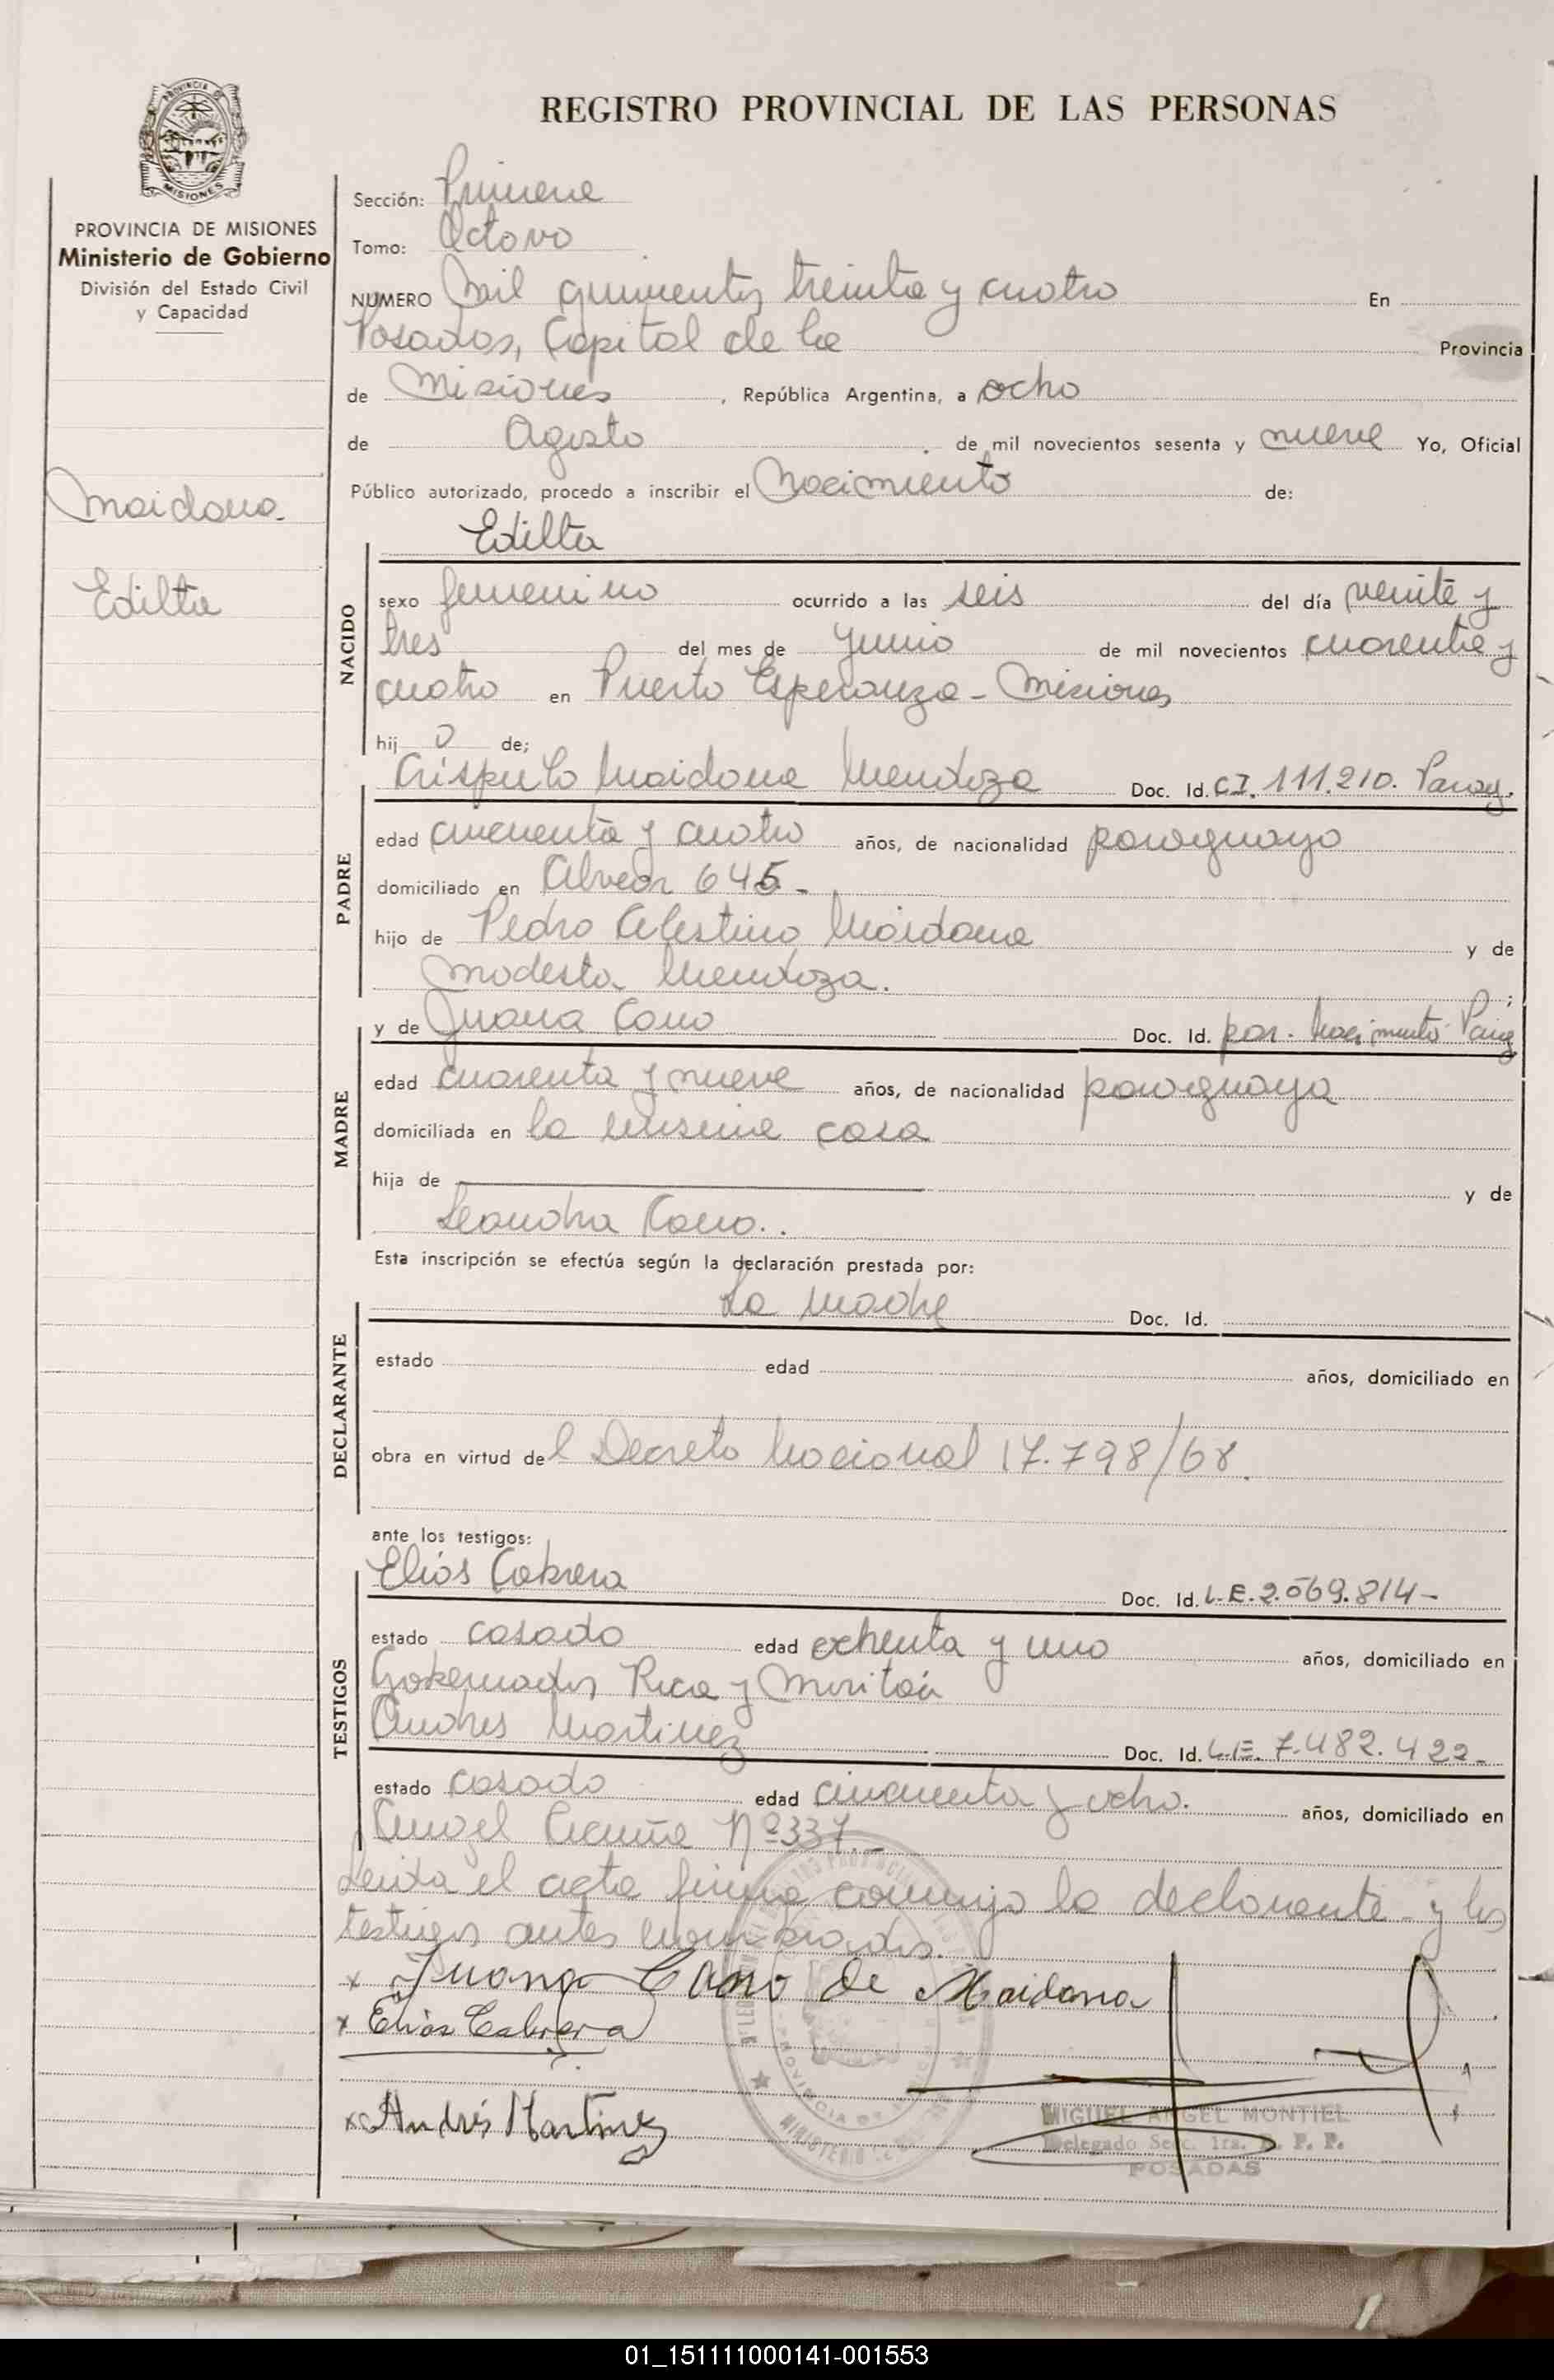 PROVINCIA DE MISIONES
Ministerio de Gobierno
División del Estado Civil
y Capacidad
Maidana
Edilta
REGISTRO PROVINCIAL DE LAS PERSONAS
Sección: Primera
Tomo: Octavo
NUMERO Mil quinientos treinta y cuatro En
Posadas, Capital de la Provincia
de Misiones, República Argentina, a ocho
de Agosto de mil novecientos sesenta y nueve Yo, Oficial
Público autorizado, procedo a inscribir el Nacimiento de:
Edilta
NACIDO
sexo femenino ocurrido a las seis del día veinte y
tres del mes de Junio de mil novecientos cuarenta y
cuatro en Puerto Esperanza - Misiones
hij o de;
PADRE
Críspulo Maidana Mendoza Doc. Id. CI. 111.210. Parag.
edad cincuenta y cuatro años, de nacionalidad paraguayo
domiciliado en Alvear 645-
hijo de Pedro Celestino Maidana y de
Modesta Mendoza. ;
MADRE
y de Juana Cano Doc. Id. par. Nacimiento Parag
edad cuarenta y nueve años, de nacionalidad paraguaya
domiciliada en la misma casa
hija de y de
Leandra Cano..
Esta inscripción se efectúa según la declaración prestada por:
DECLARANTE
La Madre Doc. Id.
estado edad años, domiciliado en
obra en virtud del Decreto Nacional 17.798/68.
ante los testigos:
TESTIGOS
Elías Cabrera Doc. Id. L.E. 2.069.814-
estado casado edad ochenta y uno años, domiciliado en
Gobernador Roca y Miritaú
Andres Martinez Doc. Id. L.E. 7.482.422-
estado casado edad cincuenta y ocho. años, domiciliado en
Angel Acuña Nº 337.-
Leida el acta firma conmigo la declarante y los
testigos antes nombrados.
x Juana Cano de Maidana
x Elías Cabrera
x Andrés Martinez
MIGUEL ANGEL MONTIEL
Delegado Secc. 1ra. R. P. P.
POSADAS
01_151111000141-001553